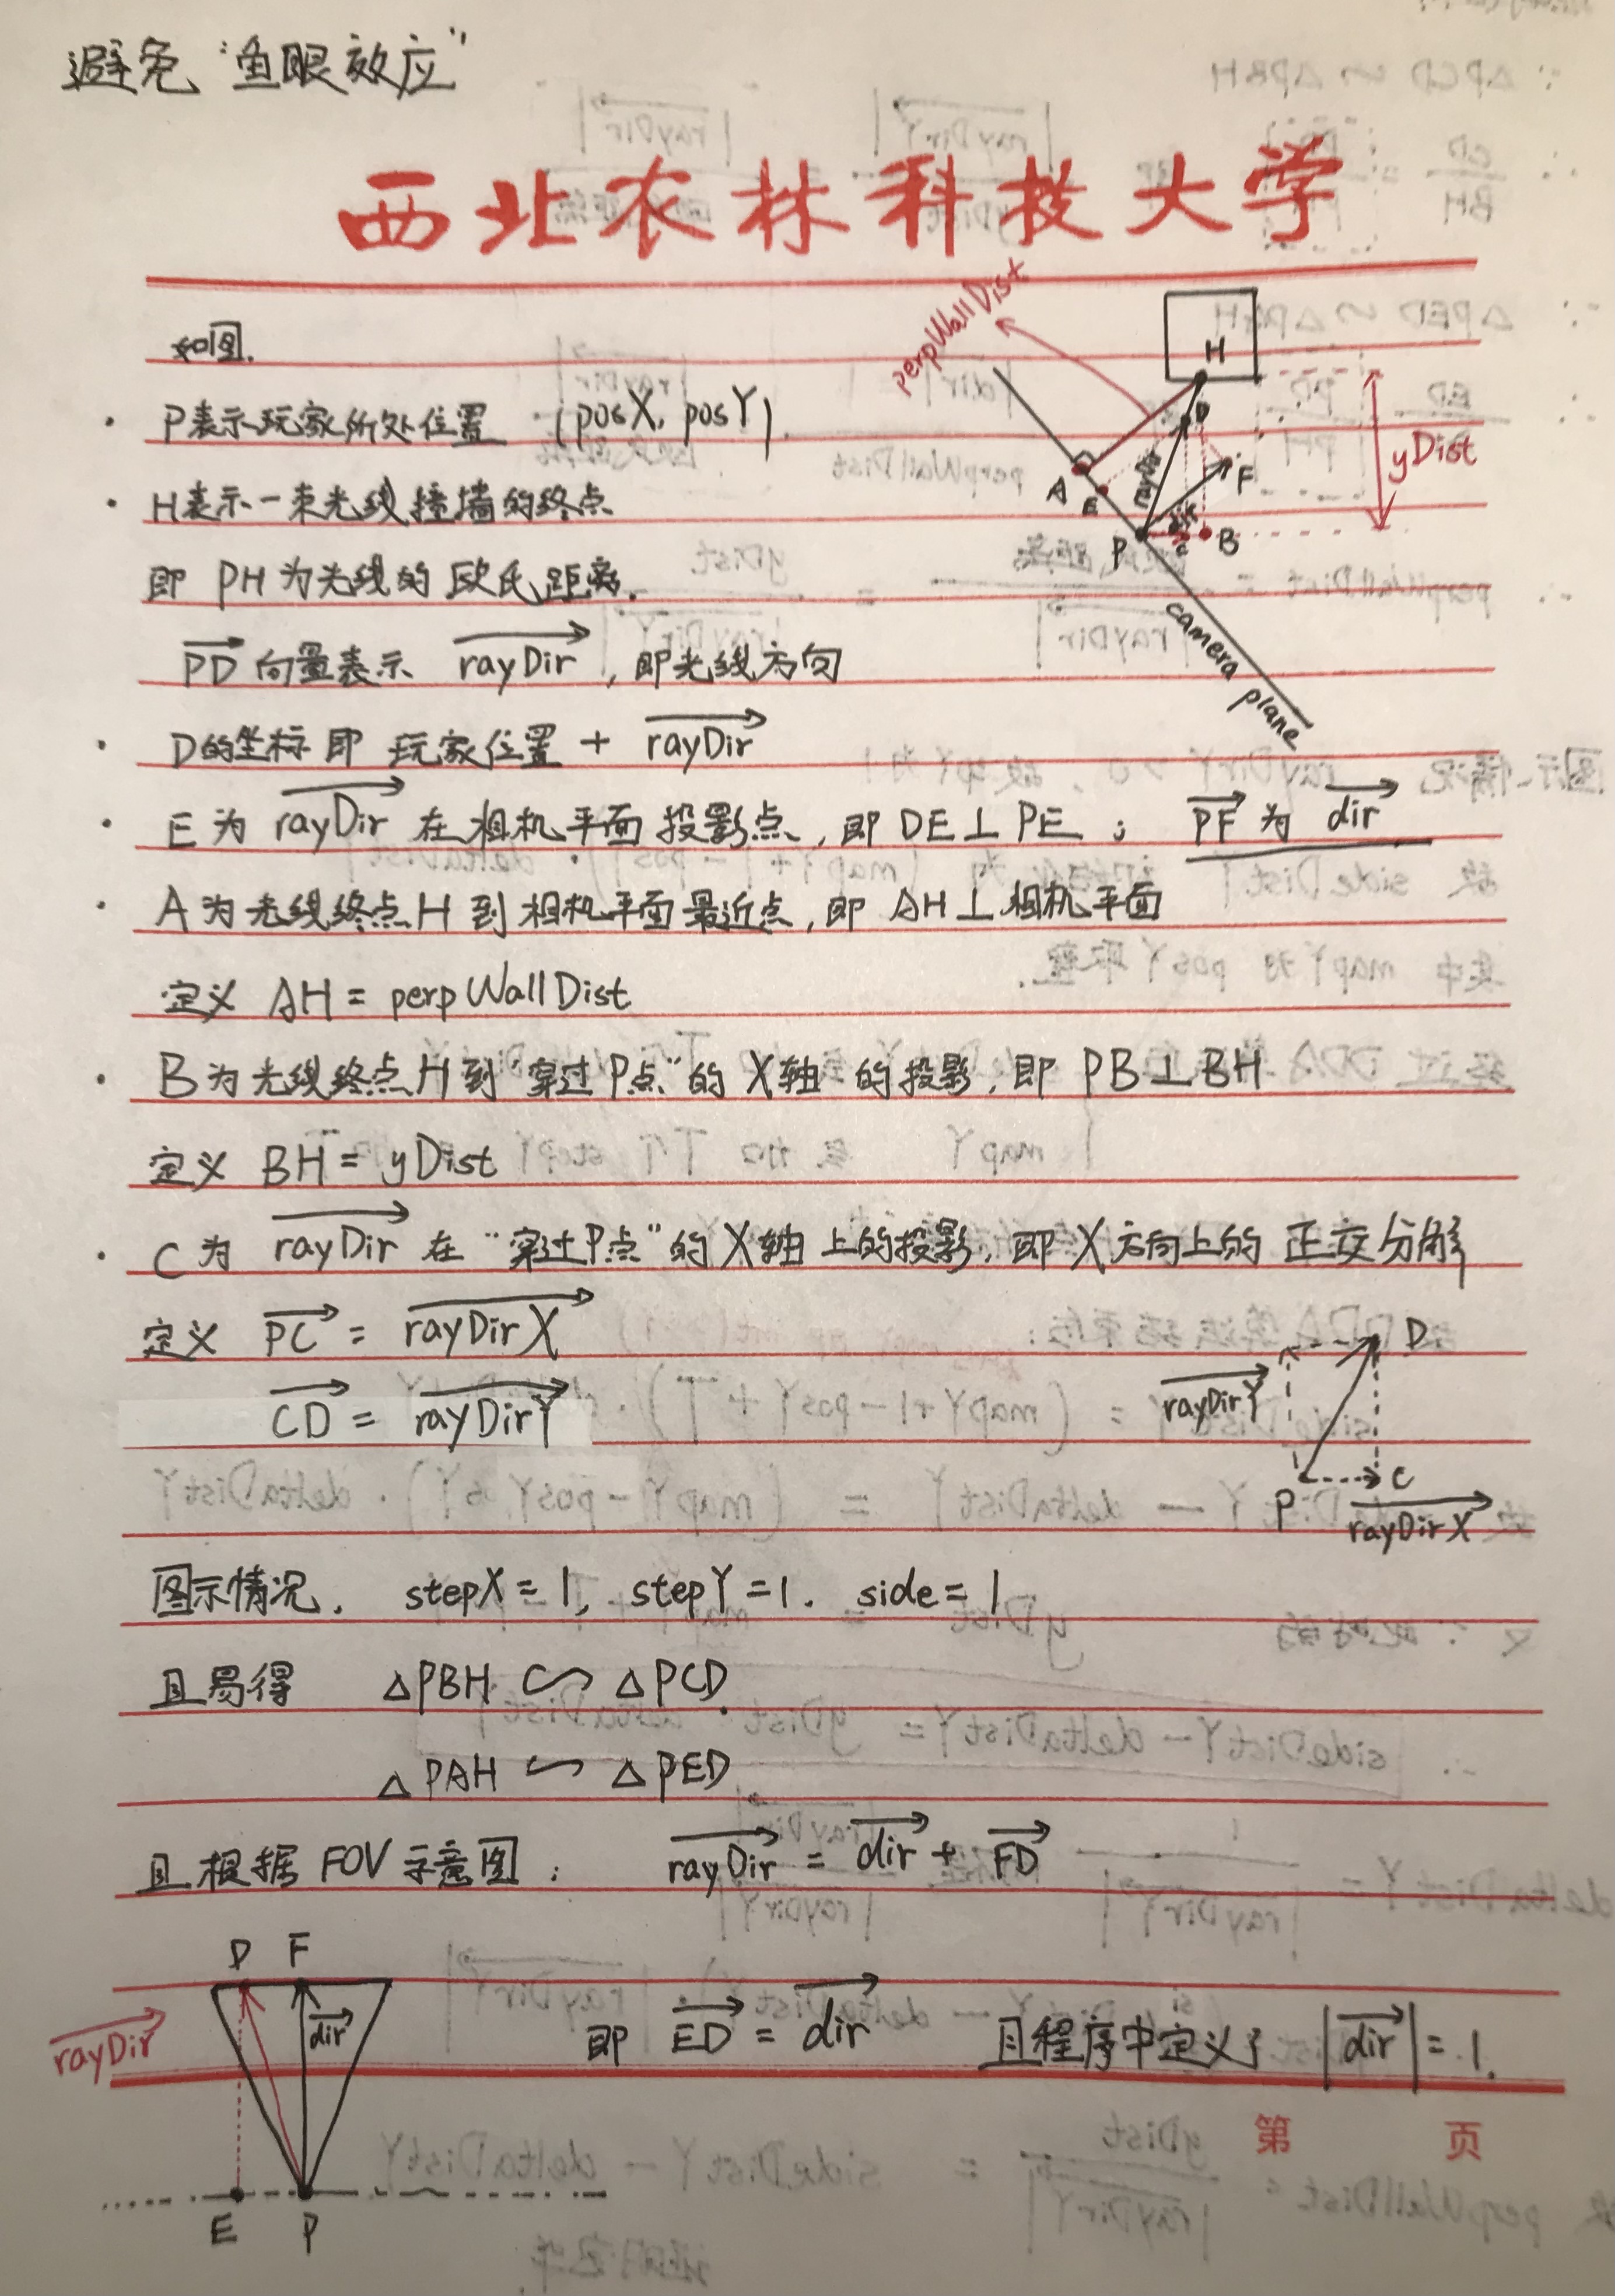 避免“鱼眼效应”
西北农林科技大学
如图.
· P表示玩家所处位置 (posX, posY).
· H表示一束光线撞墙的终点
即 PH为光线的欧氏距离.
PD 向量表示 rayDir, 即光线方向
· D的坐标即 玩家位置 + rayDir
· E为 rayDir 在相机平面投影点, 即 DE⊥PE; PF为 dir
· A为光线终点H到相机平面最近点, 即 AH⊥相机平面
定义 AH = perpWallDist
· B为光线终点H到“穿过P点”的X轴的投影, 即 PB⊥BH
定义 BH = yDist
· C为 rayDir 在“穿过P点”的X轴上的投影, 即X方向上的正交分解
定义 PC = rayDirX
CD = rayDirY
图示情况, stepX = 1, stepY = 1. side = 1
且易得 △PBH ∽ △PCD.
△PAH ∽ △PED.
且根据 FOV 示意图: rayDir = dir + FD
即 ED = dir 且程序中定义了 |dir| = 1.
第 页
perpWallDist
H
D
A
E
F
rayDir
dir
P
C
B
yDist
camera plane
D
rayDirY
P
C
rayDirX
D
F
dir
rayDir
E
P